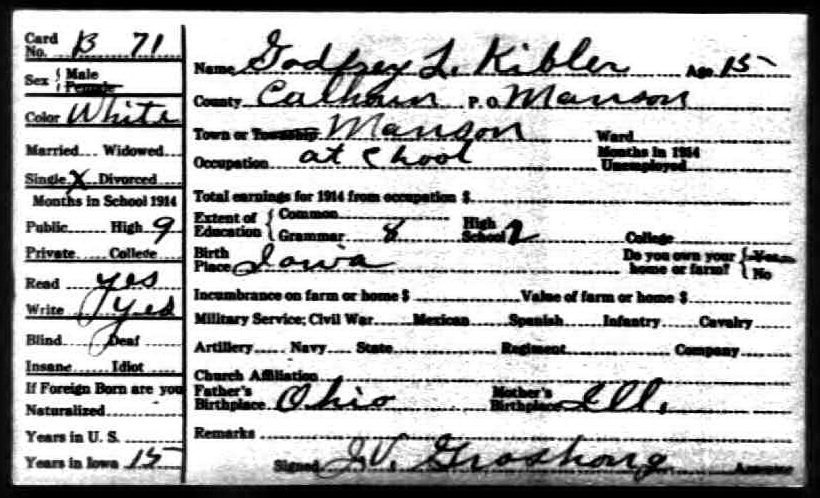 Card No. B 71
Sex { Male Female
Color White
Married.... Widowed......
Single X Divorced......
Months in School 1914
Public...... High 9
Private...... College......
Read yes
Write yes
Blind...... Deaf......
Insane...... Idiot......
If Foreign Born are you
Naturalized......
Years in U. S. ......
Years in Iowa 15
Name Godfrey L. Kibler Age 15
County Calhoun P. O. Manson
Town or Township Manson Ward
Occupation at chool Months in 1914 Unemployed
Total earnings for 1914 from occupation $
Extent of Education { Common
Grammar 8 High School 2 College
Birth Place Iowa Do you own your home or farm? { Yes No
Incumbrance on farm or home $ Value of farm or home $
Military Service; Civil War...... Mexican...... Spanish...... Infantry...... Cavalry......
Artillery...... Navy...... State...... Regiment...... Company......
Church Affiliation
Father's Birthplace Ohio Mother's Birthplace Ill.
Remarks
Signed J.V. Groshong Assessor